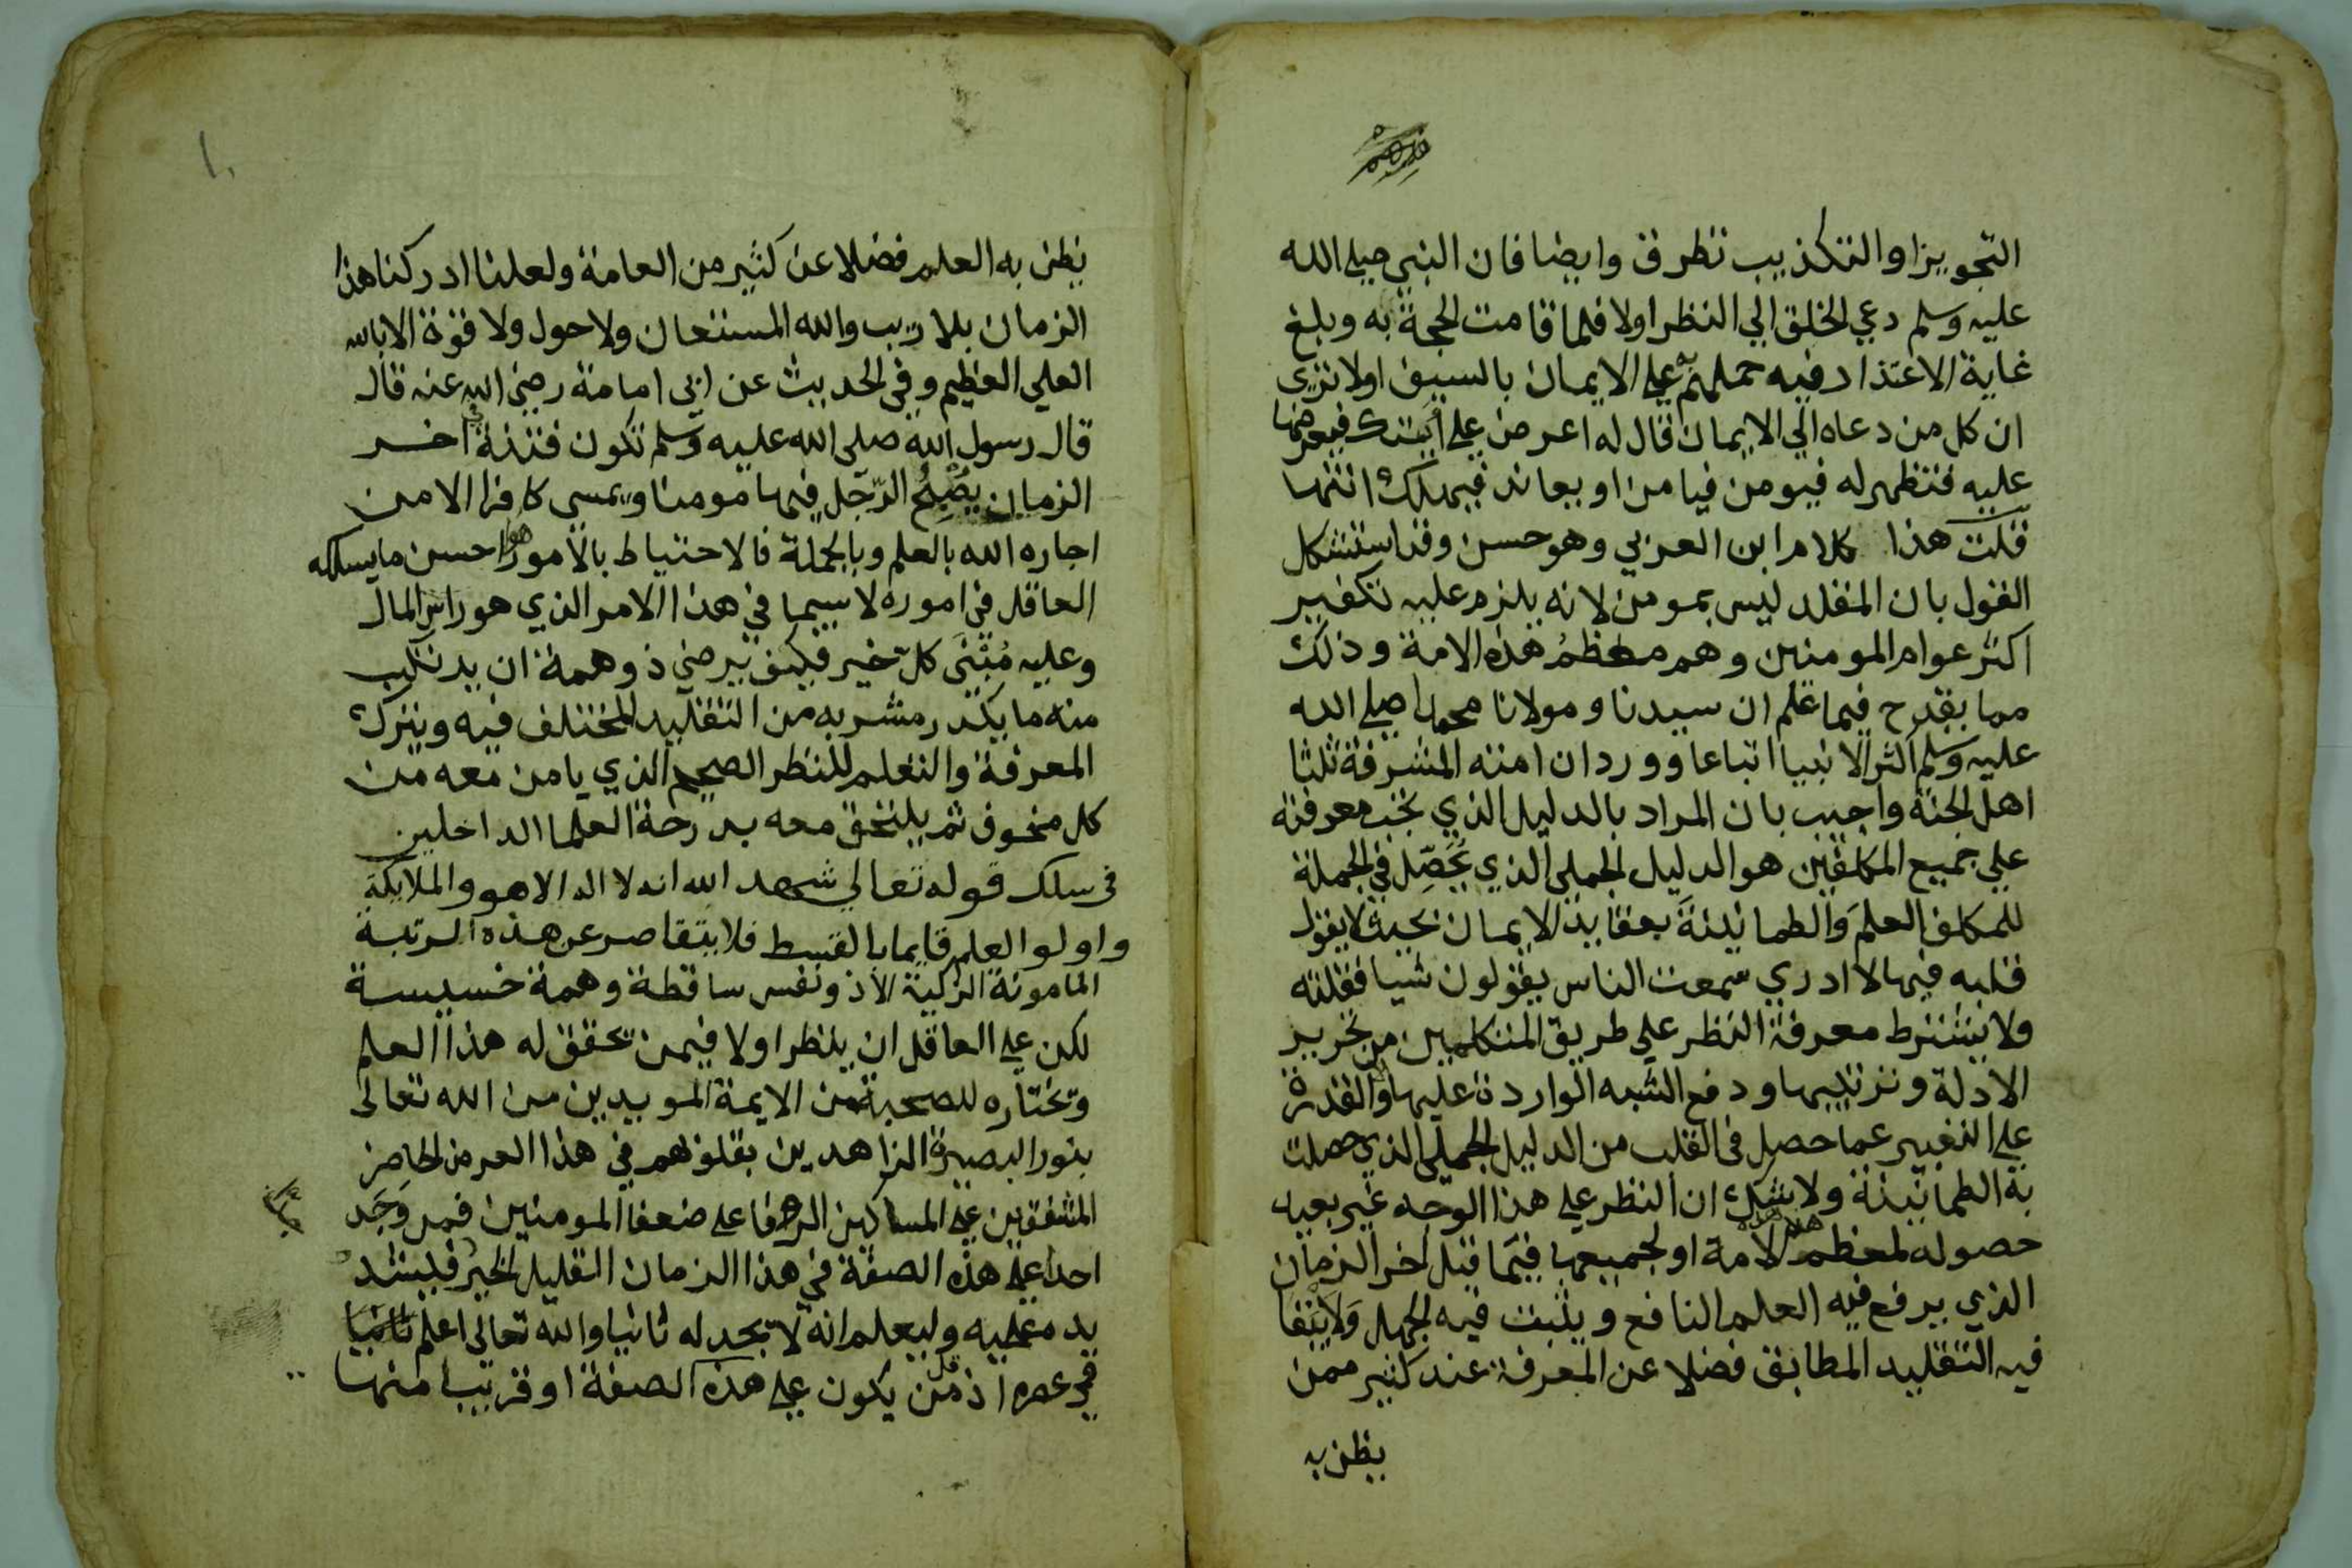 التجويز او التكذيب تطرق وايضا فان النبي صلى الله
عليه وسلم دعي الخلق الي النظر اولا فلما قامت الحجة به وبلغ
غاية الاعتذار فيه حملهم علي الايمان بالسيف اولا تري
ان كل من دعاه الي الايمان قال له اعرض علي ايتك فيعرضها
عليه فتظهر له فيومن فيامن او يعاند فيهلك انتها
قلت هذا كلام ابن العربي وهو حسن وقد استشكل
القول بان المقلد ليس بمومن لانه يلزم عليه تكفير
اكثر عوام المومنين وهم معظم هذه الامة وذلك
مما يقدح فيما علم ان سيدنا ومولانا محمدا صلي الله
عليه وسلم اكثر الانبيا اتباعا وورد ان امته المشرفة ثلثا
اهل الجنة واجيب بان المراد بالدليل الذي تجب معرفته
علي جميع المكلفين هو الدليل الجملي الذي يحصل في الجملة
للمكلف العلم والطمانينة بعقايد الايمان بحيث لا يقول
قلبه فيها لا ادري سمعت الناس يقولون شيا فقلته
ولا يشترط معرفة النظر علي طريق المتكلمين من تحرير
الادلة وترتيبها ودفع الشبه الواردة عليها ولا القدرة
علي التعبير عما حصل في القلب من الدليل الجملي الذي حصلت
به الطمانينة ولا شك ان النظر علي هذا الوجه غير بعيد
حصوله لمعظم هذه الامة او لجميعها فيما قبل اخر الزمان
الذي يرفع فيه العلم النافع ويثبت فيه الجهل ولا يبقا
فيه التقليد المطابق فضلا عن المعرفة عند كثير ممن
يظن به
١٠
يظن به العلم فضلا عن كثير من العامة ولعلنا ادركنا هذا
الزمان بلا ريب والله المستعان ولا حول ولا قوة الا بالله
العلي العظيم وفي الحديث عن ابي امامة رضي الله عنه قال
قال رسول الله صلى الله عليه وسلم تكون فتنة في اخر
الزمان يصبح الرجل فيها مومنا ويمسى كافرا الا من
اجاره الله بالعلم وبالجملة فالاحتياط بالامور هو احسن ما يسلكه
العاقل في اموره لا سيما في هذا الامر الذي هو راس المال
وعليه مبنى كل خير فكيف يرضي ذو همة ان يرتكب
منه ما يكدر مشربه من التقليد المختلف فيه ويترك
المعرفة والتعلم للنظر الصحيح الذي يامن معه من
كل مخوف ثم يلتحق معه بدرجة العلما الداخلين
في سلك قوله تعالي شهد الله انه لا اله الا هو والملايكة
واولوا العلم قايما بالقسط فلا يتقاصر عن هذه الرتبة
المامونة الزكية الا ذو نفس ساقطة وهمة خسيسة
لكن علي العاقل ان ينظر اولا فيمن تحقق له هذا العلم
وتختاره للصحبة من الايمة المويدين من الله تعالى
بنور البصيرة الزاهدين بقلوبهم في هذا العرض الحاضر
المشفقين علي المساكين الرحما علي ضعفا المومنين فمن وجد
احدا علي هذه الصفة في هذا الزمان القليل الخير فليشد
يده عليه وليعلم انه لا يجد له ثانيا والله تعالى اعلم
في عصره اذ قل من يكون علي هذه الصفة او قريب منها